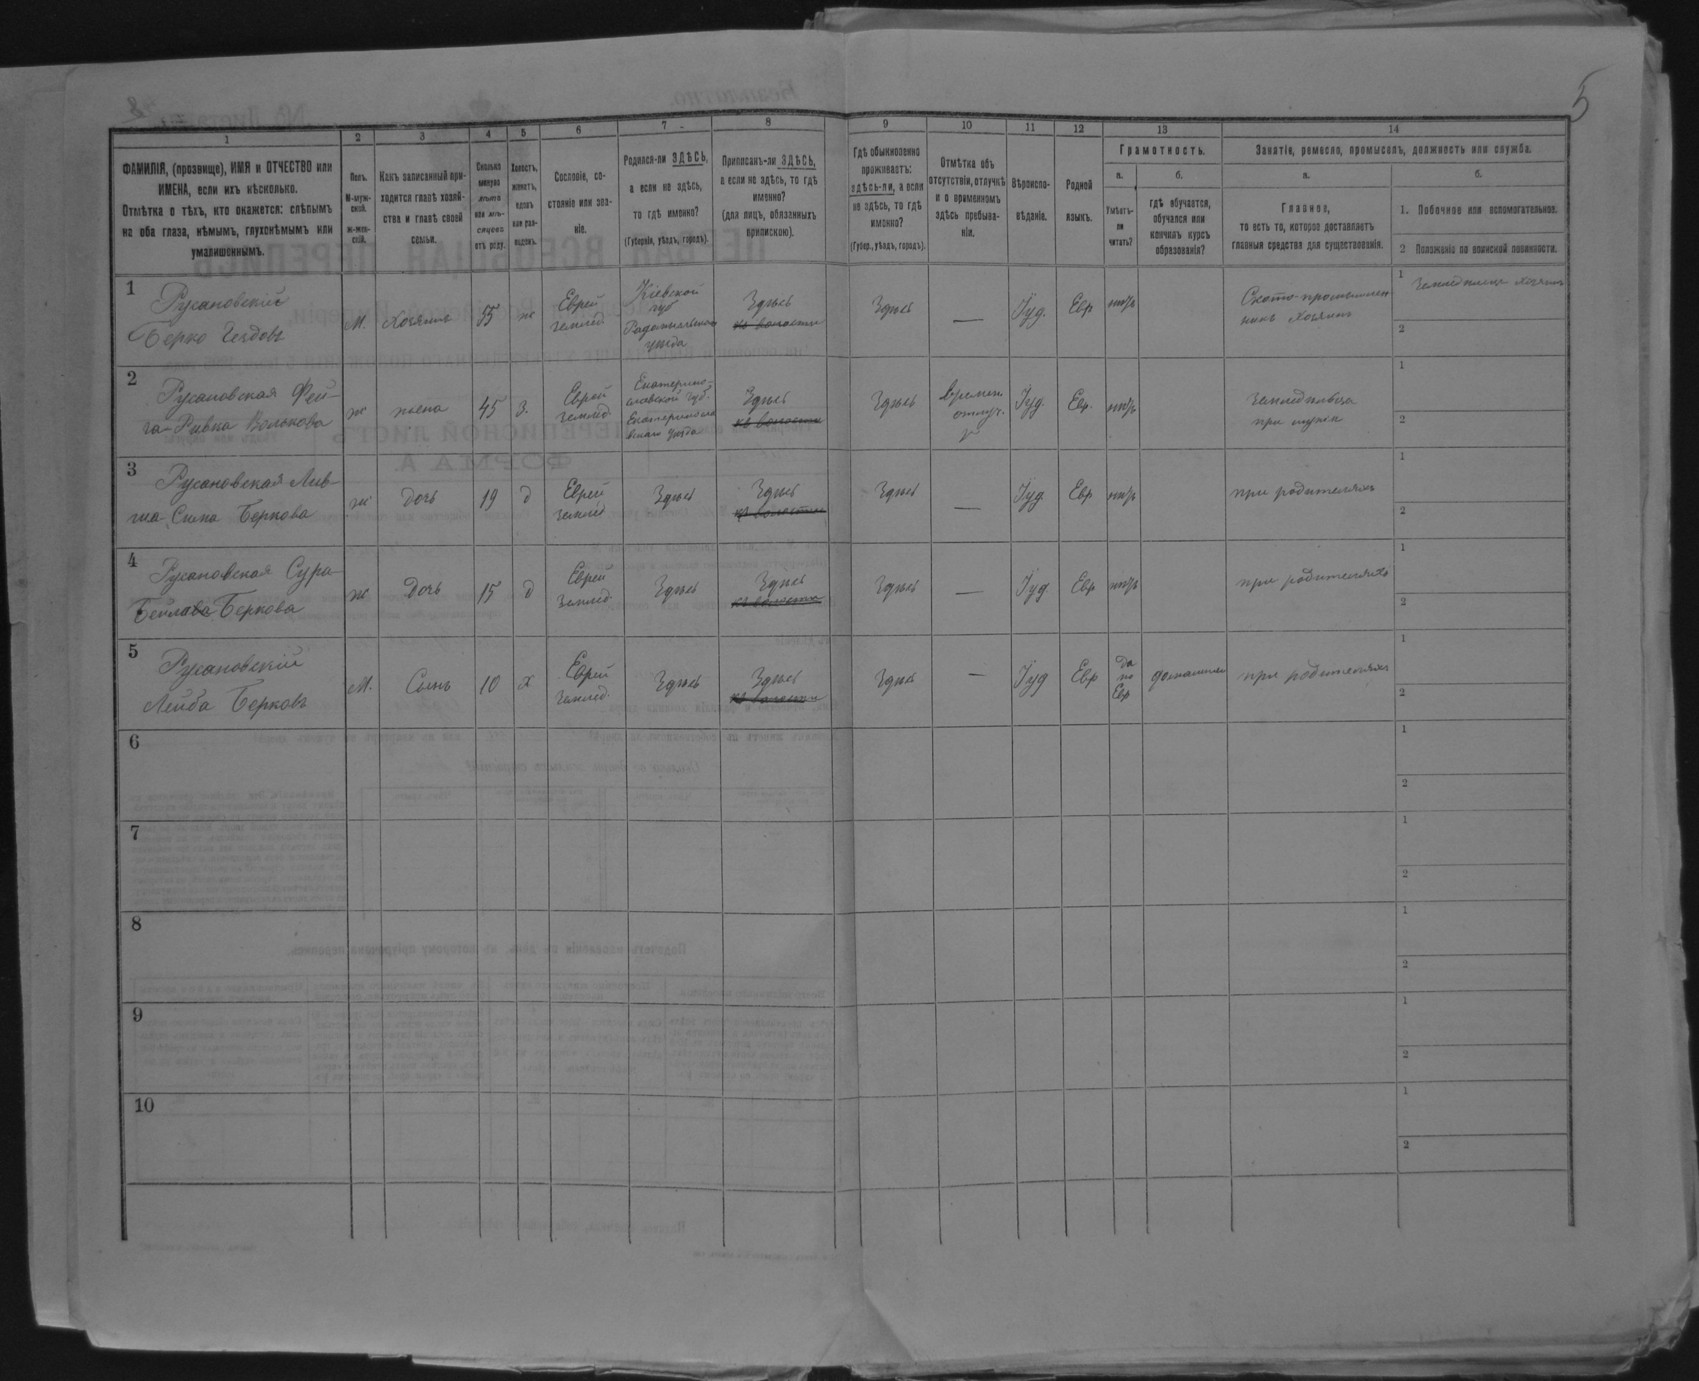 5
1
2
3
4
5
6
7
8
9
10
11
12
13
14
ФАМИЛІЯ, (прозвище), ИМЯ и ОТЧЕСТВО или
ИМЕНА, если ихъ нѣсколько.
Отмѣтка о тѣхъ, кто окажется: слѣпымъ
на оба глаза, нѣмымъ, глухонѣмымъ или
умалишеннымъ.
Полъ.
М-муж-
ской.
ж-жен-
скій.
Какъ записанный при-
ходится главѣ хозяй-
ства и главѣ своей
семьи.
Сколько
минуло
лѣтъ
или мѣ-
сяцевъ
отъ роду.
Холостъ,
женатъ,
вдовъ
или раз-
веденъ.
Сословіе, со-
стояніе или зва-
ніе.
Родился-ли ЗДѢСЬ,
а если не здѣсь,
то гдѣ именно?
(Губернія, уѣздъ, городъ).
Приписанъ-ли ЗДѢСЬ,
а если не здѣсь, то гдѣ
именно?
(для лицъ, обязанныхъ
припискою).
Гдѣ обыкновенно
проживаетъ:
здѣсь-ли, а если
не здѣсь, то гдѣ
именно?
(Губер., уѣздъ, городъ).
Отмѣтка объ
отсутствіи, отлучкѣ
и о временномъ
здѣсь пребыва-
ніи.
Вѣроиспо-
вѣданіе.
Родной
языкъ.
Грамотность.
а.
Умѣетъ-
ли
читать?
б.
гдѣ обучается,
обучался или
кончилъ курсъ
образованія?
Занятіе, ремесло, промыселъ, должность или служба.
а.
Главное,
то есть то, которое доставляетъ
главныя средства для существованія.
б.
1. Побочное или вспомогательное.
2 Положеніе по воинской повинности.
1
Русановскій
Берко
М.
Хозяинъ
55
ж
Еврей
землед
Кіевской
губ
Радомысльскаго
уѣзда
Здѣсь
къ волости
Здѣсь
—
Іуд.
Евр
нѣтъ
Ското-промышлен
никъ Хозяинъ
1
Хозяинъ
2
2
Русановская Фей-
га-Ривка Волькова
ж
жена
45
з.
Еврей
землед
Екатерино-
славской губ.
Здѣсь
къ волости
Здѣсь
Времен.
отлуч.
Іуд.
Евр.
нѣтъ
при мужѣ
1
2
3
Русановская
Беркова
ж
дочь
19
д
Еврей
землед
Здѣсь
Здѣсь
къ волости
Здѣсь
—
Іуд.
Евр
нѣтъ
при родителяхъ
1
2
4
Русановская Сура-
Беркова
ж
Дочь
15
д
Еврей
землед
Здѣсь
Здѣсь
къ волости
Здѣсь
—
Іуд.
Евр
нѣтъ
при родителяхъ
1
2
5
Русановскій
Лейба Берковъ
М.
Сынъ
10
х
Еврей
землед.
Здѣсь
Здѣсь
къ волости
Здѣсь
—
Іуд
Евр
да
по
Евр
домашнее
при родителяхъ
1
2
6
1
2
7
1
2
8
1
2
9
1
2
10
1
2